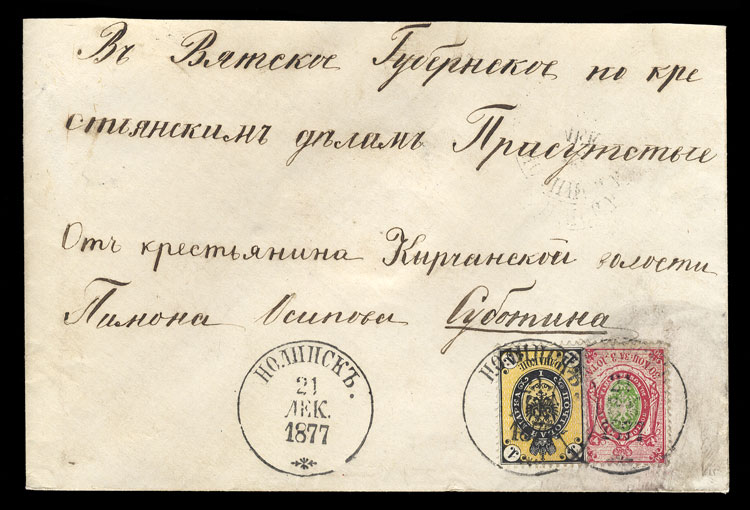 Въ Вятское Губернское по кре
стьянскимъ дѣламъ Присутствые
Отъ крестьянина Кирчанской волости
Пимона Осипова Суботина
НОЛИНСКЪ.
21
ДЕК.
1877
НОЛИНСКЪ.